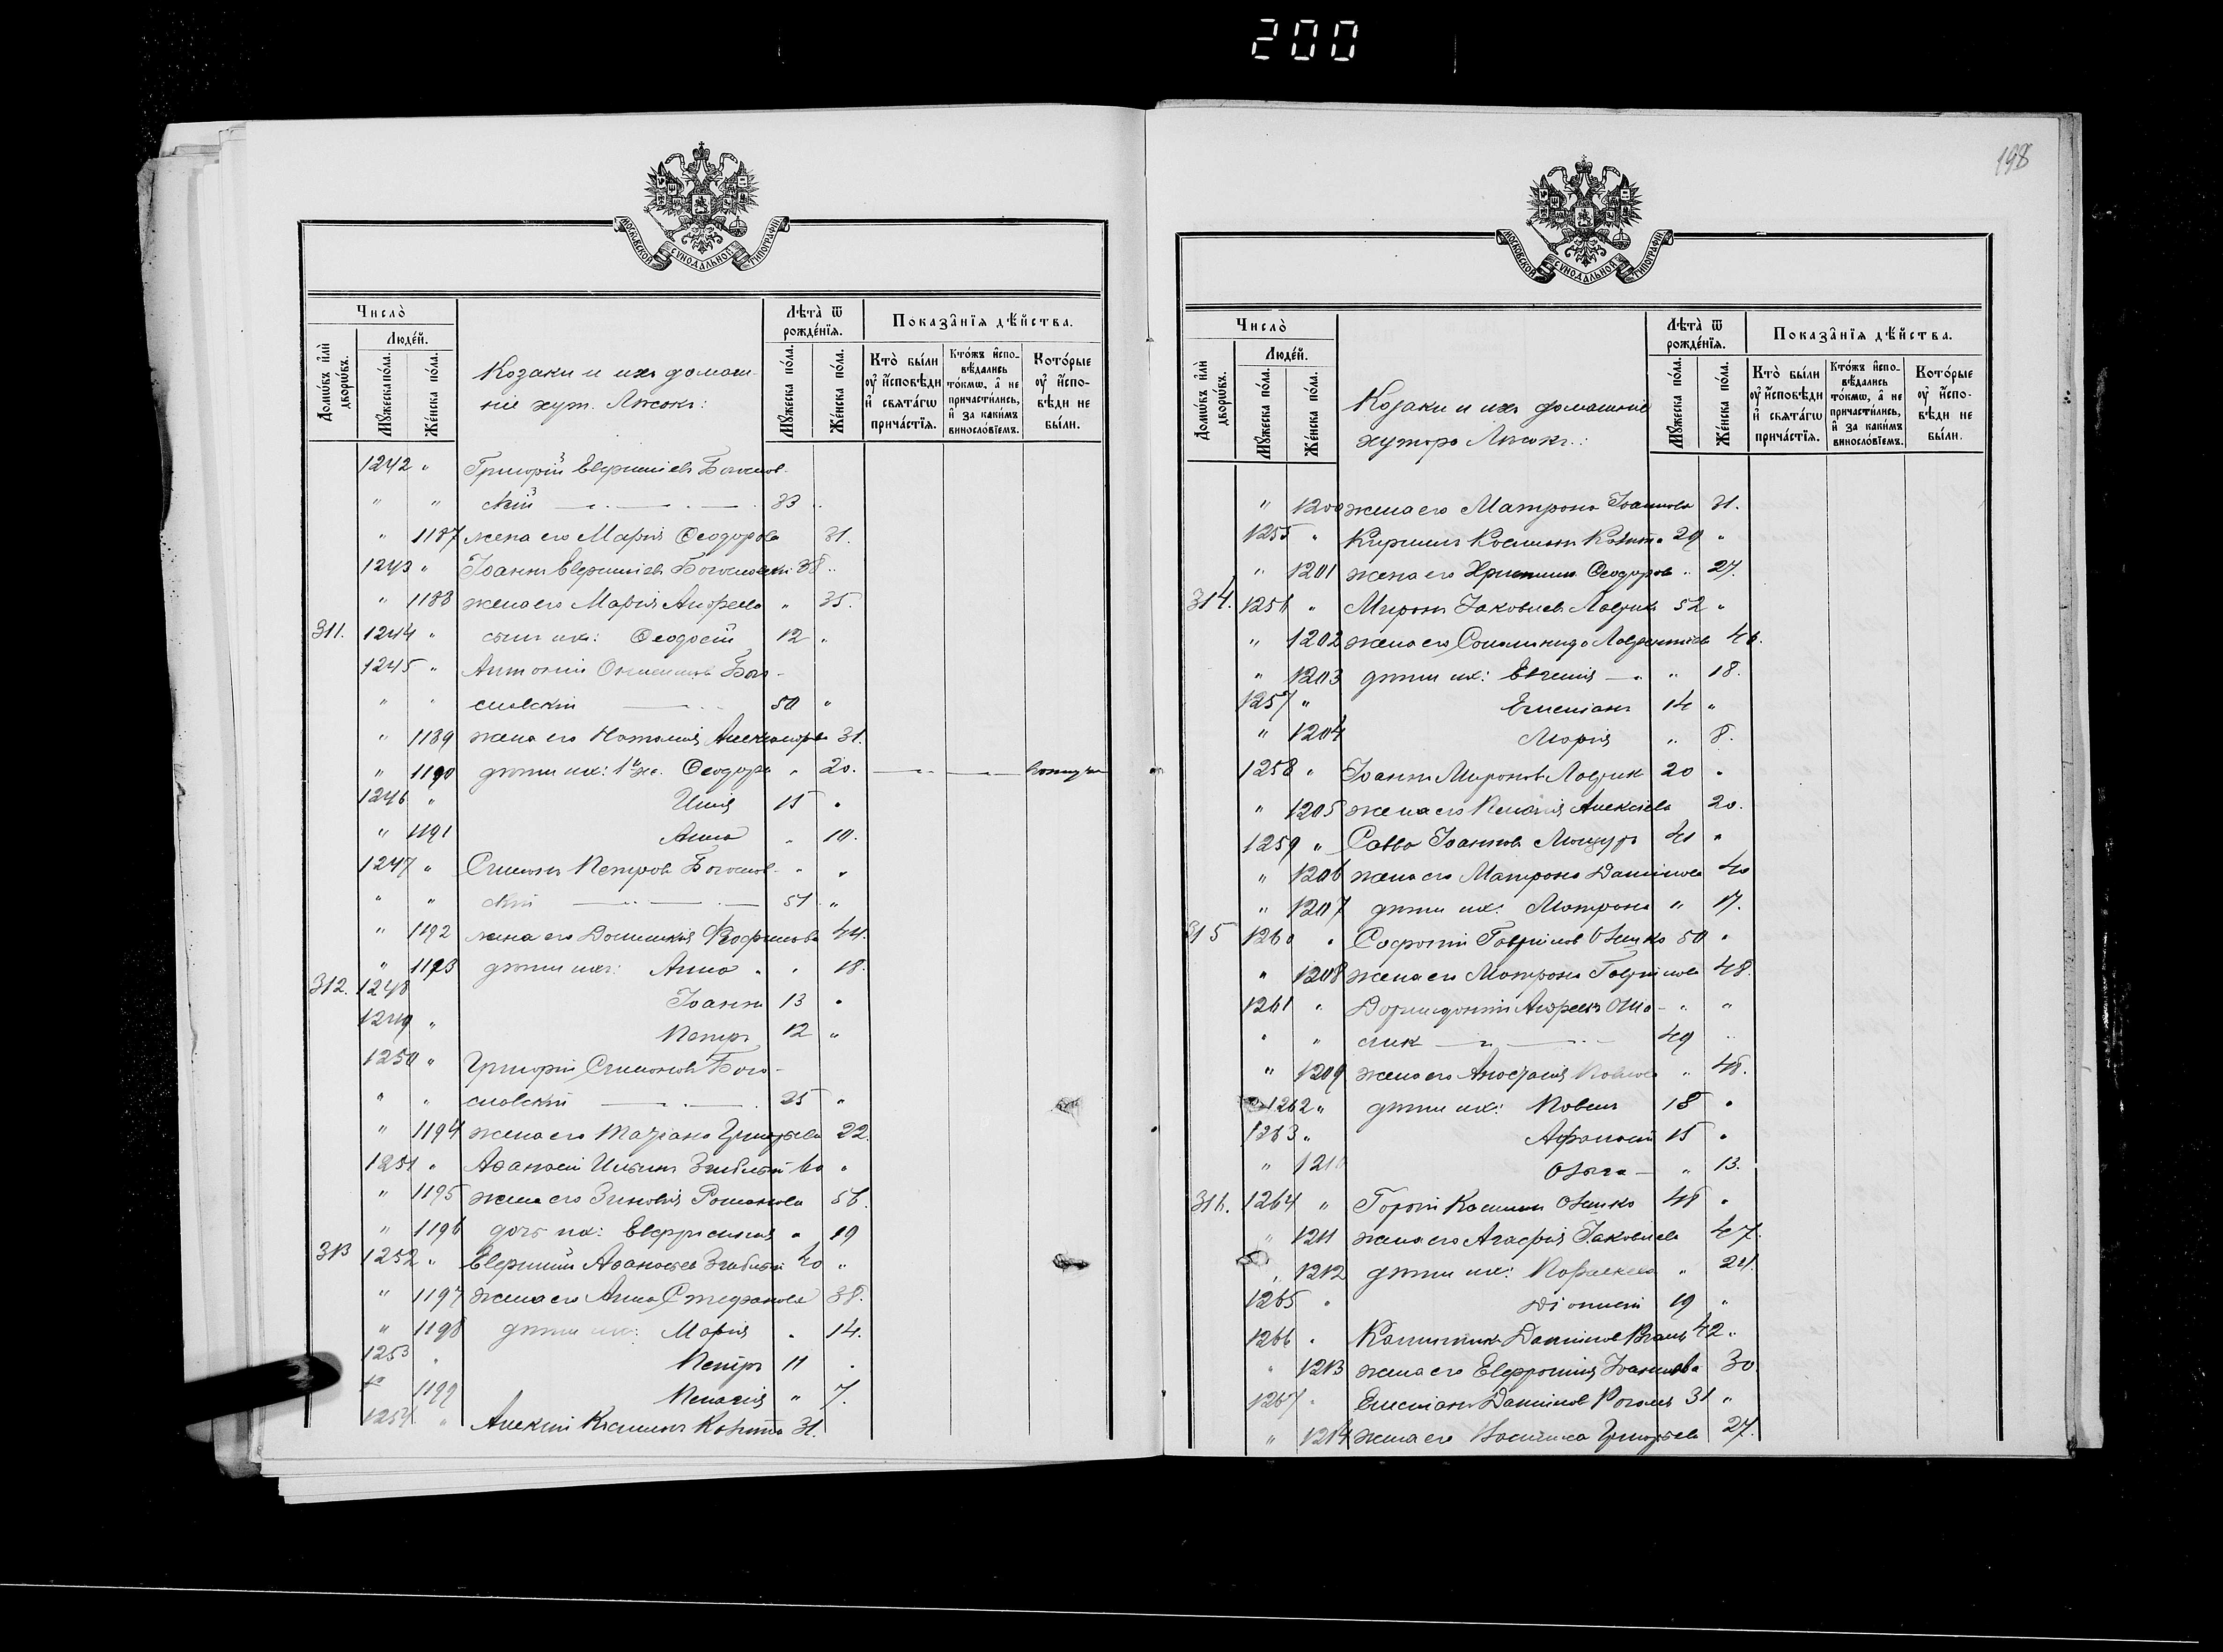 200
198
МОСКОВСКОЙ СѴНОДАЛЬНОЙ ТИПОГРАФІИ
Число̀
Людéй.
Домѡ́въ и҆лѝ дворѡ́въ.
Мꙋ́жеска по́ла.
Же́нска по́ла.
Козаки и ихъ домаш-
ніе хут. Лѣсокъ:
Лѣта̀ ѿ рожде́нїѧ.
Мꙋ́жеска по́ла.
Же́нска по́ла.
Показа̑нїѧ дѣ́йства.
Кто̀ бы́ли ᲂу҆ и҆́сповѣди и҆ свѧта́гѡ прича́стїѧ.
Кто́жъ и҆спо- вѣ́дались то́кмѡ, а҆ не причасти́лись, и҆ за каки́мъ винослóвїемъ.
Кото́рые ᲂу҆ и҆́спо- вѣди не бы́ли.
1242 " Григорій Евфиміевъ Богослов-
" " скій 33
" 1187 жена его Марія Ѳеодорова 31.
1243 " Іоаннъ Евфиміевъ Богословскій 38 "
" 1188 жена его Марія Андреева " 35.
311. 1244 " сынъ ихъ: Ѳеодосій 12 "
1245 " Антоній Бого-
" " словскій 50 "
" 1189 жена его Наталія Александрова 31.
" 1190 дѣти ихъ: 1й ж. Ѳеодора " 20.
1246 " Илія 15 "
" 1191 Анна " 10.
1247 " Симонъ Петровъ Богослов- " "
" " скій 51 "
" 1192 жена его Домникія 44.
" 1193 дѣти ихъ: Анна " 18.
312. 1248 Іоаннъ 13 "
1249 " Петръ 12 "
1250 " Григорій Симоновъ Бого-
" " словскій 25 "
" 1194 жена его Татіана Григорьева 22.
1251 " Аѳанасій Ильинъ 60 "
" 1195 жена его Зиновія Романова 56.
" 1196 дочь ихъ: Евфросинія " 19
313 1252 " Евфимій Аѳанасьевъ 40 "
" 1197 жена его Анна Стефанова 38.
" 1198 дѣти ихъ: Марія " 14.
1253 " Петръ 11 "
1199 Пелагія " 7.
1254. " Алексій Косминъ 31.
МОСКОВСКОЙ СѴНОДАЛЬНОЙ ТИПОГРАФІИ
Число̀
Людéй.
Домѡ́въ и҆лѝ дворѡ́въ.
Мꙋ́жеска по́ла.
Же́нска по́ла.
Козаки и ихъ домашніе
хутора Лѣсокъ:
Лѣта̀ ѿ рожде́нїѧ.
Мꙋ́жеска по́ла.
Же́нска по́ла.
Показа̑нїѧ дѣ́йства.
Кто̀ бы́ли ᲂу҆ и҆́сповѣди и҆ свѧта́гѡ прича́стїѧ.
Кто́жъ и҆спо- вѣ́дались то́кмѡ, а҆ не причасти́лись, и҆ за каки́мъ винослóвїемъ.
Кото́рые ᲂу҆ и҆́спо- вѣди не бы́ли.
" 1200 жена его Матрона Іоаннова 31.
1255 " Кириллъ Косминъ 29 "
" 1201 жена его Христина Ѳеодорова " 27.
314. 1256 " Миронъ Іаковлевъ Лаврик 52 "
" 1202 жена его Соломонида Лаврентіева 46.
" 1203 дѣти ихъ: Евгенія " 18.
1257 " Емеліанъ 14 "
" 1204 Марія " 8.
1258 " Іоаннъ Мироновъ Лаврик 20 "
" 1205 жена его Пелагія Алексіева 20.
1259 " Савва Іоанновъ 41 "
" 1206 жена его Матрона Даніилова 40
" 1207 дѣти ихъ: Матрона " 17.
315 1260 " Софроній Гавріиловъ 50 "
" 1208 жена его Матрона Гавріилова 48.
1261 " Дормидонтій Андреевъ " "
" " 49
" 1209 жена его Анастасія Павлова " 48.
1262 " дѣти ихъ: Павелъ 18 "
1263 " Аѳанасій 15 "
" 1210 Ольга " 13.
316. 1264 " Косминъ 48 "
" 1211 жена его Агафія Іаковлева 47.
" 1212 дѣти ихъ: Параскева " 24.
1265 " Діонисій 19 "
1266 " Даніиловъ 42 "
" 1213 жена его Евфросинія Іоаннова 30.
1267 " Емеліанъ Даніиловъ 31 "
" 1214 жена его Василиса Григорьева 27.